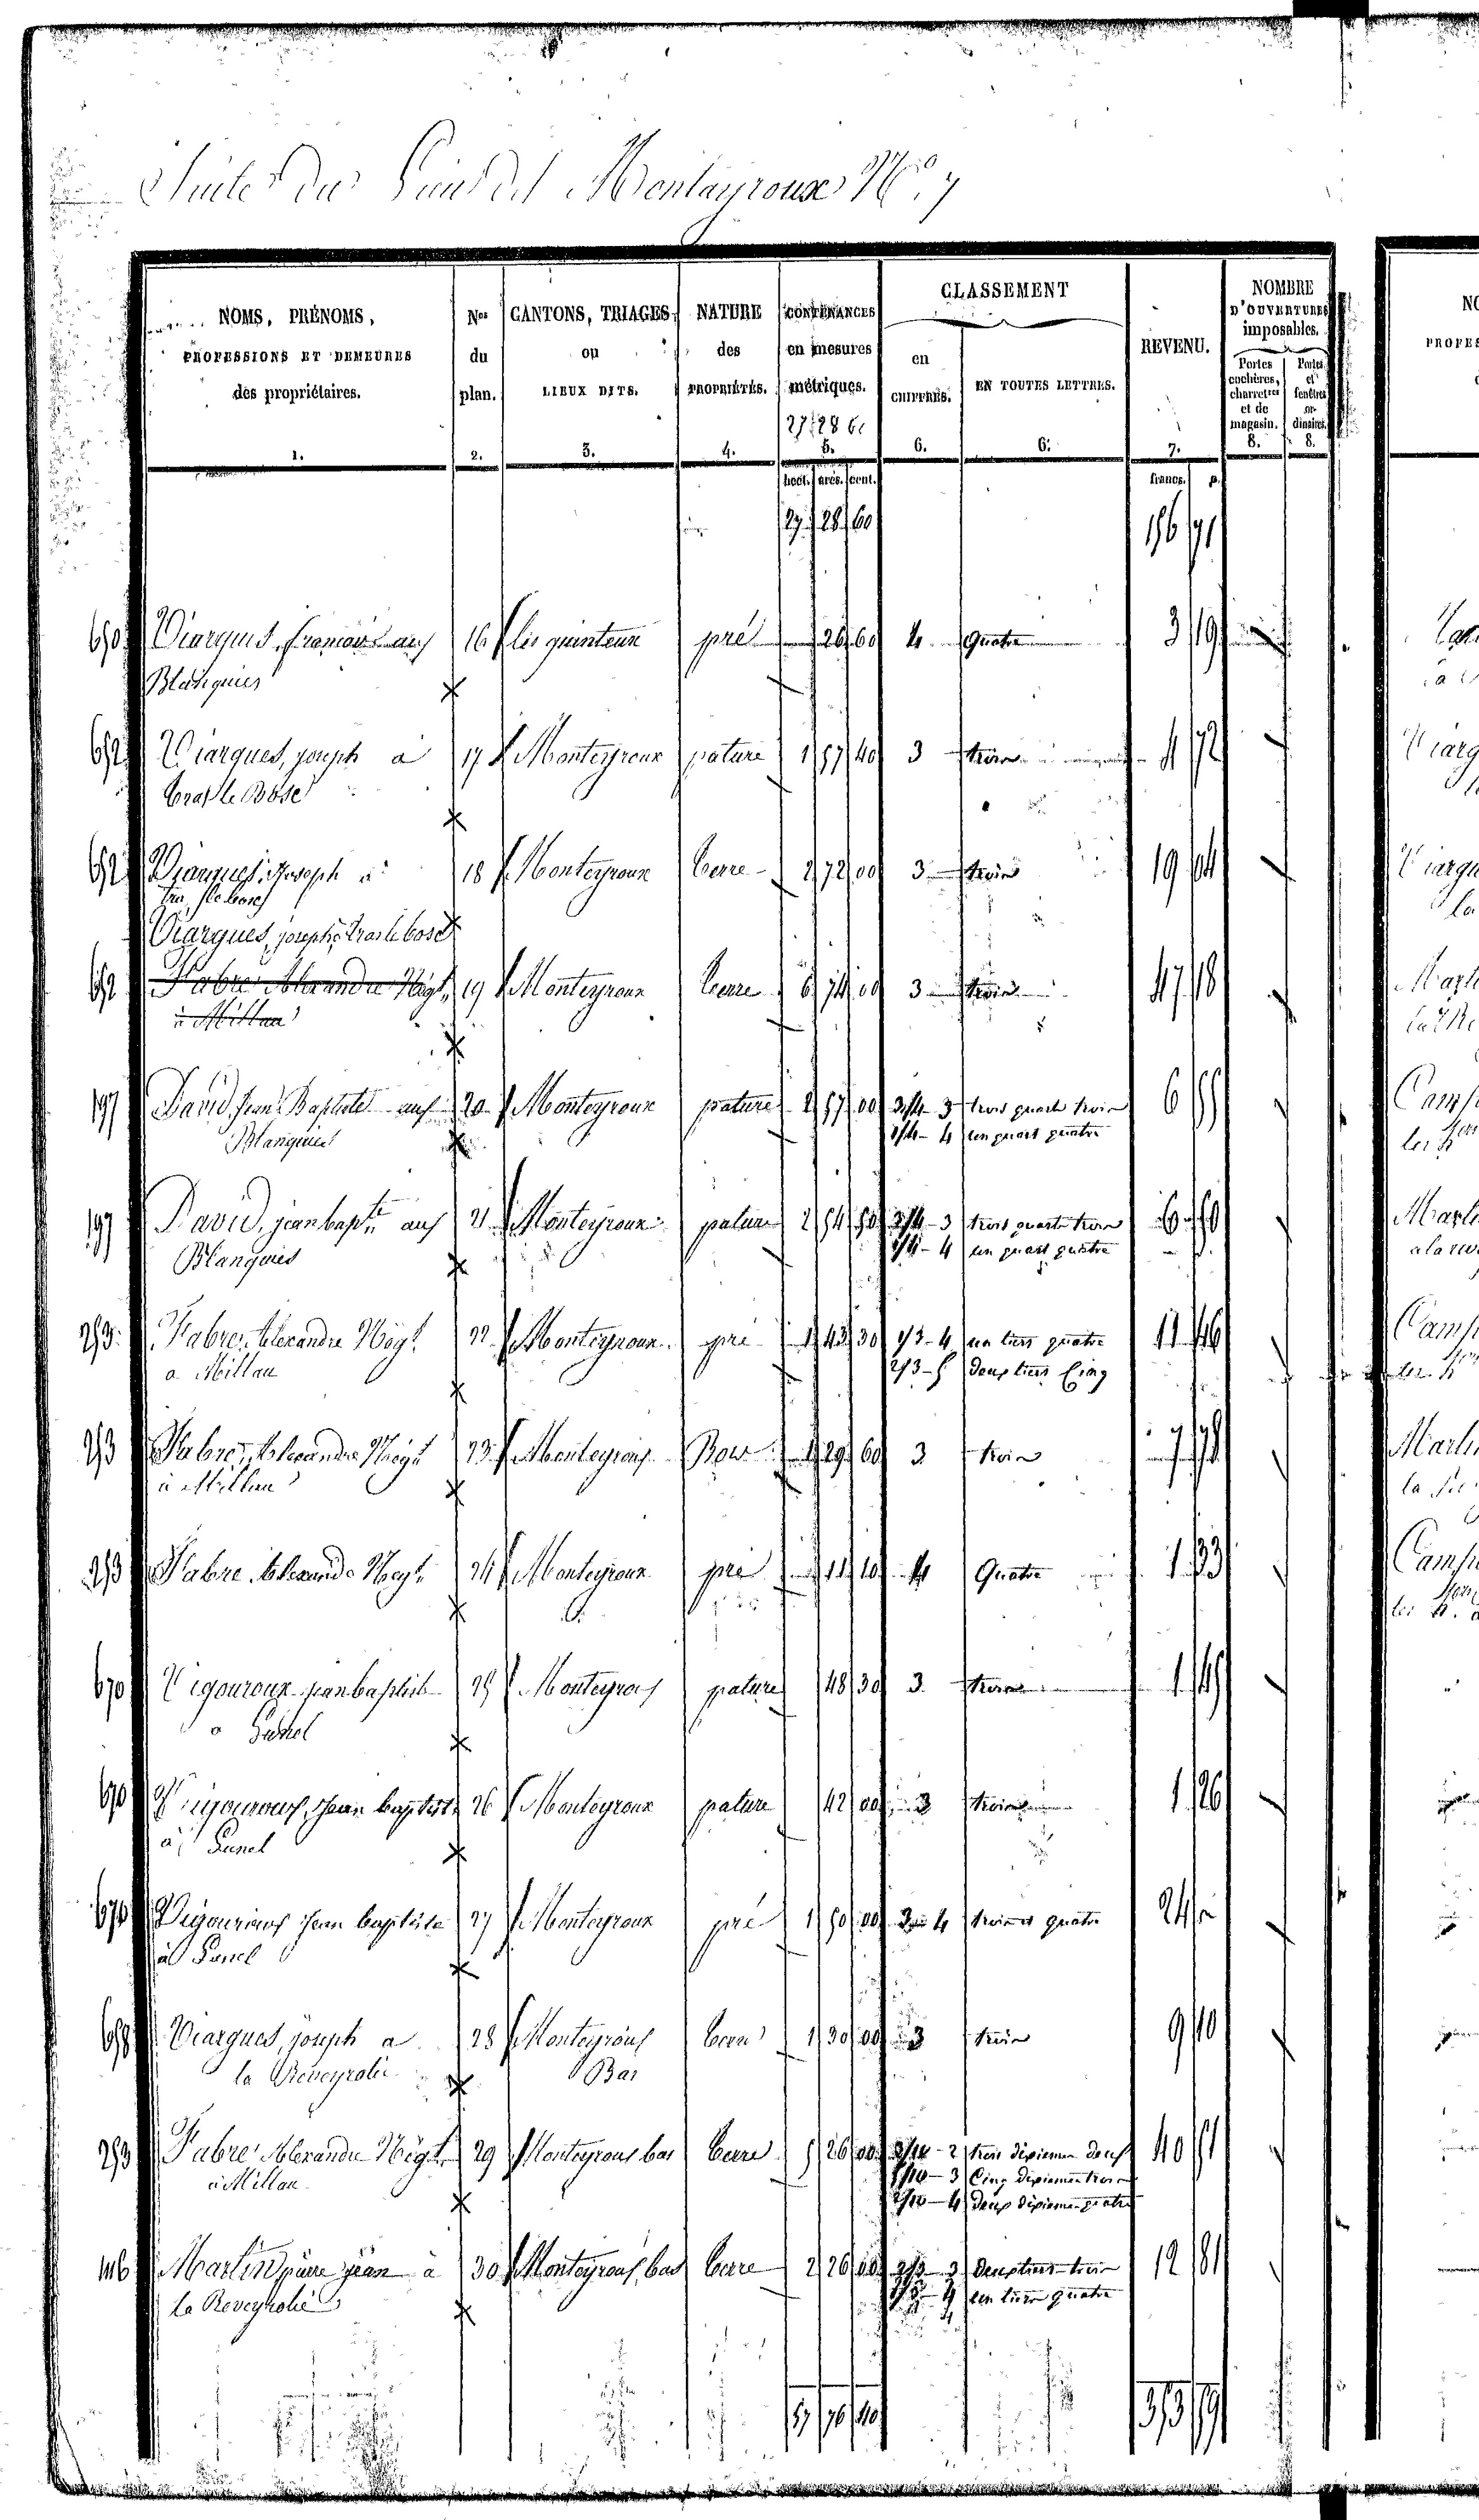 Suite du Montayroux N° 7
NOMS, PRÉNOMS, PROFESSIONS ET DEMEURES des propriétaires. 1.
Nos du plan. 2.
CANTONS, TRIAGES ou LIEUX DITS. 3.
NATURE des PROPRIÉTÉS. 4.
CONTENANCES en mesures métriques. 27 28 60 5.
CLASSEMENT en CHIFFRES. 6. EN TOUTES LETTRES. 6.
REVENU. 7.
NOMBRE D'OUVERTURES imposables. Portes cochères, charretières et de magasin. 8. Portes et fenêtres ordinaires. 8.
hect. ares. cent. francs.
27 28 60 156 71
650 Viarques, françois aux 16 les quinteux pré 26 60 4 Quatre 3 19
Blanquies
652 Viarques, joseph à 17 Monteyroux pature 1 57 40 3 trois 4 72
tras le Bosc
652 Viarques, Joseph à 18 Monteyroux terre 2 72 00 3 trois 19 04
tras le bosc
Viarques, joseph à tras le bosc
652 Fabre Alexandre Negt. 19 Monteyroux terre 6 74 00 3 trois 47 18
à Millau
197 David, Jean Baptiste aux 20 Monteyroux pature 2 57 00 3/4 - 3 trois quarts trois 6 55
Blanquies 1/4 - 4 un quart quatre
197 David, jean bapte. aux 21 Monteyroux pature 2 54 50 3/4 - 3 trois quarts trois 6 50
Blanquies 1/4 - 4 un quart quatre
253 Fabre, Alexandre Négt. 22 Monteyroux pré 1 43 30 1/3 - 4 un tiers quatre 11 46
a Millau 2/3 - 5 deux tiers Cinq
253 Fabre, Alexandre Négt. 23 Monteyroux Bois 1 29 60 3 trois 7 78
à Millau
253 Fabre Alexandre Negt. 24 Monteyroux pré 11 10 4 Quatre 1 33
670 Vigouroux jean baptiste 25 Monteyroux pature 48 30 3 trois 1 45
a Gunel
670 Vigouroux, Jean baptiste 26 Monteyroux pature 42 00 3 trois 1 26
à Gunel
670 Vigouroux Jean baptiste 27 Monteyroux pré 1 50 00 3 - 4 trois et quatre 24 "
à Gunel
658 Viarques, joseph a 28 Monteyroux terre 1 30 00 3 trois 9 10
la Reveyrolie Bas
253 Fabre Alexandre Négt. 29 Monteyroux bas terre 5 26 00 3/10 - 2 trois dixiemes deux 40 51
à Millau 5/10 - 3 Cinq dixiemes trois
2/10 - 4 deux dixiemes quatre
446 Martin père jean à 30 Monteyroux bas terre 2 26 00 2/3 - 3 deux tiers trois 12 81
la Reveyrolie 1/3 - 4 un tiers quatre
57 76 40 353 59